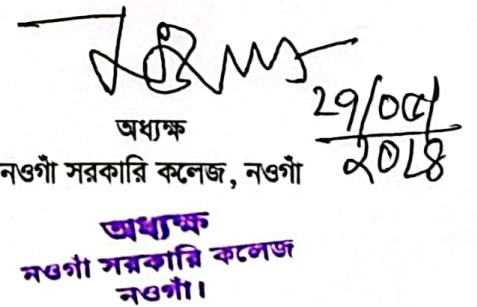 অধ্যক্ষ
নওগাঁ সরকারি কলেজ, নওগাঁ
অধ্যক্ষ
নওগাঁ সরকারি কলেজ
নওগাঁ।